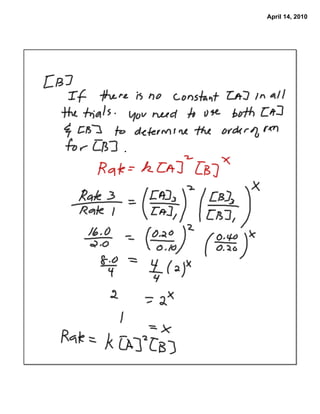 April 14, 2010
[B]
If there is no constant [A] in all
the trials. you need to use both [A]
& [B] to determine the order of rxn
for [B].
Rate = k [A]² [B]ˣ
Rate 3 / Rate 1 = ([A]₃ / [A]₁)² ([B]₃ / [B]₁)ˣ
16.0 / 2.0 = (0.20 / 0.10)² (0.40 / 0.20)ˣ
8.0 / 4 = 4 / 4 (2)ˣ
2 = 2ˣ
1 = x
Rate = k [A]² [B]